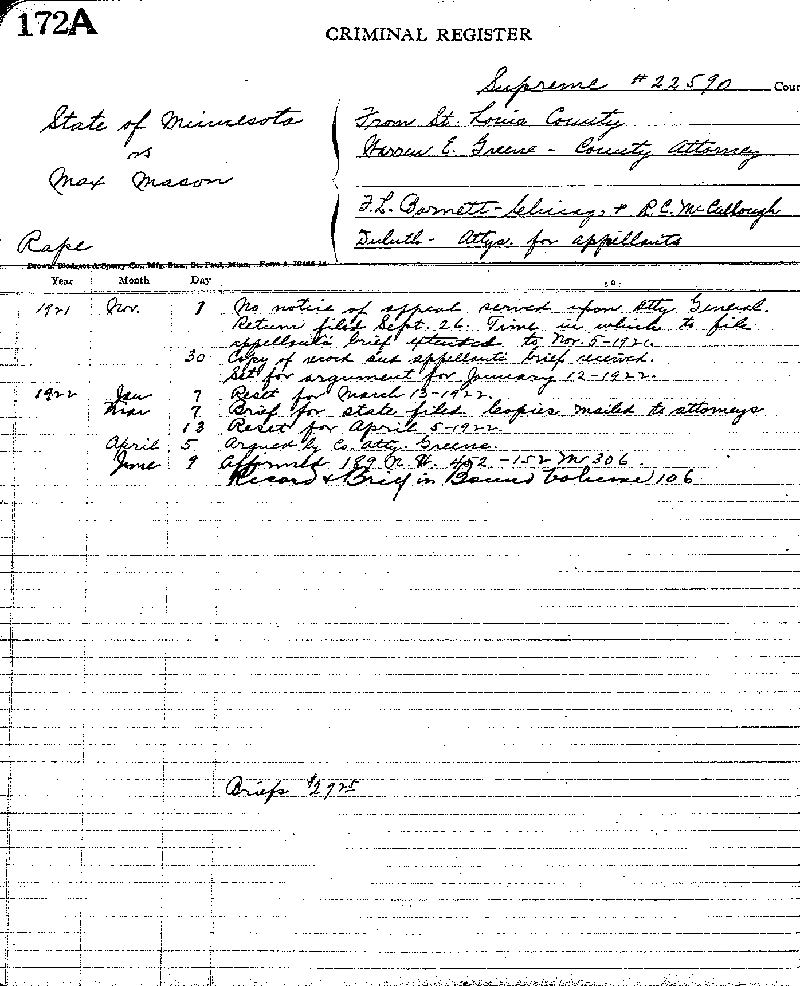 172A
CRIMINAL REGISTER
Supreme #22590 Cour
State of Minnesota
vs
Max Mason
From St. Louis County
Warren E. Greene - County Attorney
F.L. Barnett - Chicago, + R.C. McCullough
Duluth - Attys. for appellants
Rape
Brown, Blodgett & Sperry Co., Mfg. Stas., St. Paul, Minn. Form
Year Month Day
1921 Nov. 1 No notice of appeal served upon Atty General.
Return filed Sept. 26. Time in which to file
appellants brief extended to Nov 5-192
30 Copy of record and appellants brief received.
Set for argument for January 12-1922.
1922 Jan 7 Reset for March 13-1922
Mar 7 Brief for state filed Copies mailed to attorneys
13 Reset for April 5-1922
April 5 Argued by Co. Atty. Greene.
June 9 Affirmed 189 N.W. 452 - 152 M 306.
Record & Brief in Bound Volume 106
Briefs $2925